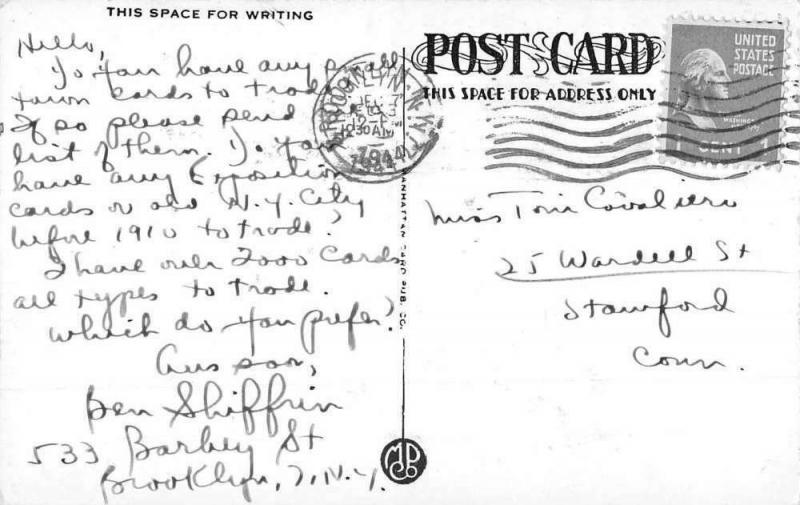 THIS SPACE FOR WRITING
Hello,
Do you have any small
town cards to trade
If so please send
list of them. Do you
have any Exposition
cards or old N.Y. City
before 1910 to trade?
I have over 2000 cards
all types to trade.
Which do you prefer?
Ans soon,
Ben Shiffrin
533 Barbey St
Brooklyn, 7, N.Y.
POST CARD
THIS SPACE FOR ADDRESS ONLY
BROOKLYN, N.Y.
12-M
1944
UNITED
STATES
POSTAGE
WASHINGTON
1 CENT 1
Miss Toni Cavalieri
25 Wardell St
Stamford
Conn.
MANHATTAN CARD PUB. CO.